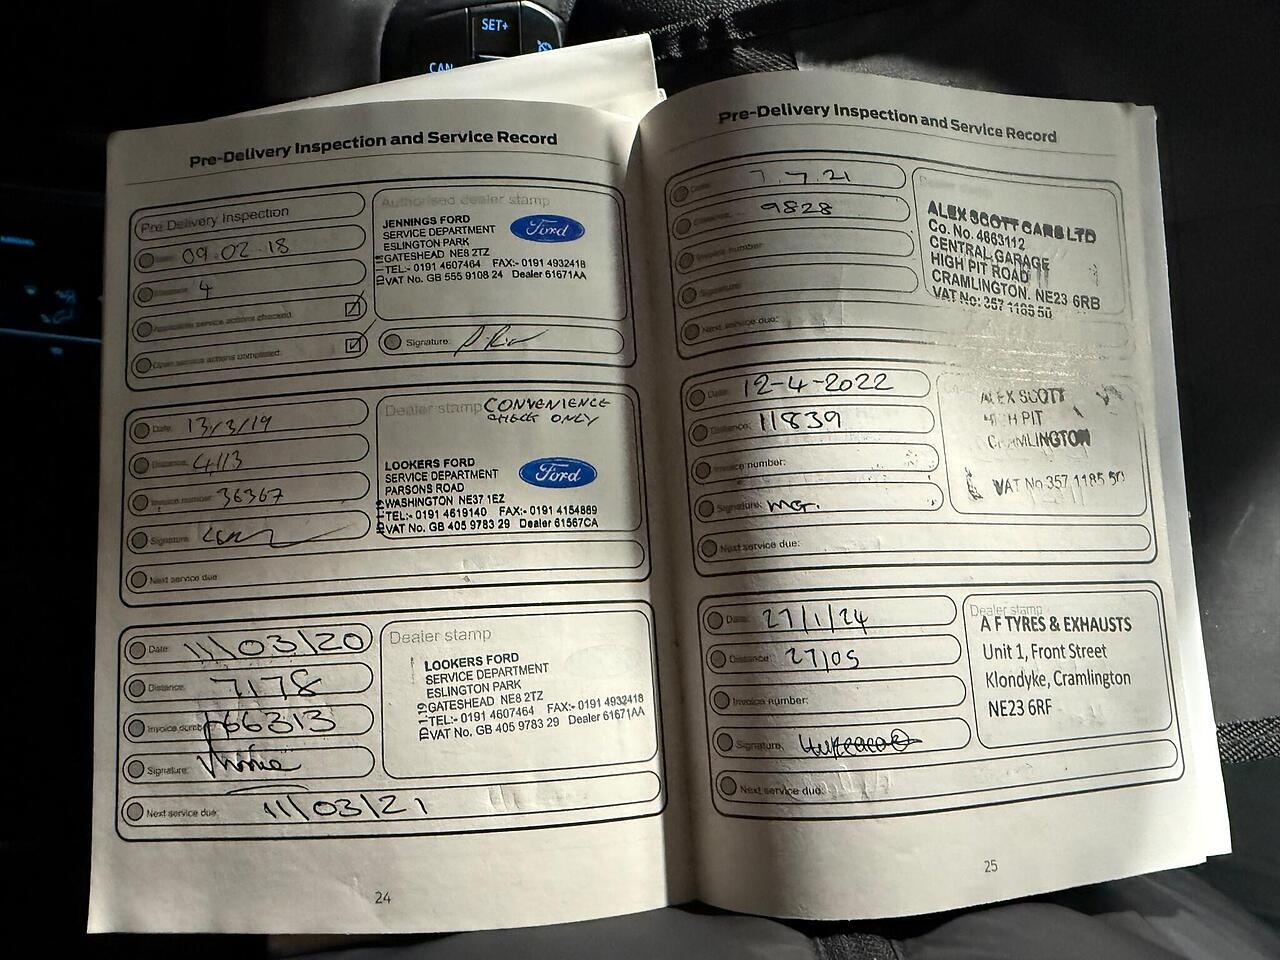 SET+
CAN
Pre-Delivery Inspection and Service Record
Pre Delivery Inspection
Date: 09.02.18
Distance: 4
Applicable service actions checked
Open service actions completed
Authorised dealer stamp
JENNINGS FORD
SERVICE DEPARTMENT
ESLINGTON PARK
GATESHEAD NE8 2TZ
TEL:- 0191 4607464 FAX:- 0191 4932418
VAT No. GB 555 9108 24 Dealer 61671AA
Ford
Signature:
Date: 13/3/19
Distance: 4113
Invoice number: 36367
Signature:
Next service due:
Dealer stamp CONVENIENCE
CHECK ONLY
LOOKERS FORD
SERVICE DEPARTMENT
PARSONS ROAD
WASHINGTON NE37 1EZ
TEL:- 0191 4619140 FAX:- 0191 4154889
VAT No. GB 405 9783 29 Dealer 61567CA
Ford
Date: 11/03/20
Distance: 7178
Invoice number 66313
Signature:
Next service due: 11/03/21
Dealer stamp
LOOKERS FORD
SERVICE DEPARTMENT
ESLINGTON PARK
GATESHEAD NE8 2TZ
TEL:- 0191 4607464 FAX:- 0191 4932418
VAT No. GB 405 9783 29 Dealer 61671AA
24
Pre-Delivery Inspection and Service Record
Date: 7.7.21
Distance: 9828
Invoice number:
Signature:
Next service due:
Dealer stamp
ALEX SCOTT CARS LTD
Co. No. 4663112
CENTRAL GARAGE
HIGH PIT ROAD
CRAMLINGTON. NE23 6RB
VAT No: 357 1185 50
Date: 12-4-2022
Distance: 11839
Invoice number:
Signature: MGr.
Next service due:
ALEX SCOTT
HIGH PIT
CRAMLINGTON
VAT No 357 1185 50
Date: 27/1/24
Distance: 27105
Invoice number:
Signature:
Next service due:
Dealer stamp
A F TYRES & EXHAUSTS
Unit 1, Front Street
Klondyke, Cramlington
NE23 6RF
25